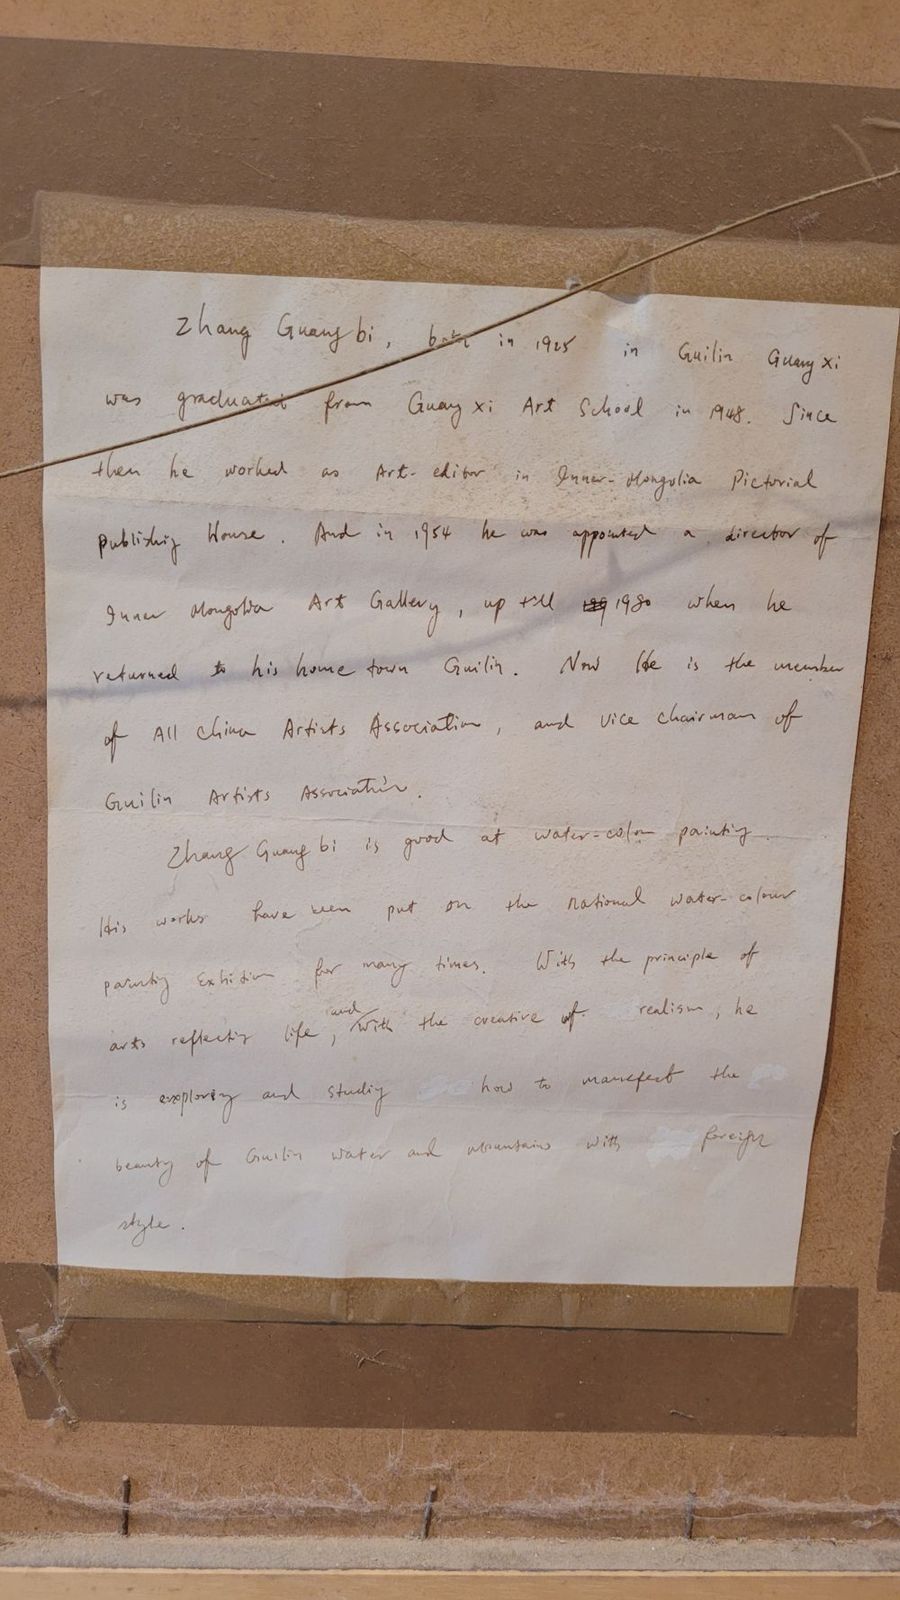 Zhang Guang bi, born in 1925 in Guilin Guang xi
was graduated from Guang xi Art School in 1948. Since
then he worked as Art-editor in Inner-Mongolia Pictorial
publishing House. And in 1954 he was appointed a director of
Inner Mongolia Art Gallery, up till 1980 when he
returned to his home town Guilin. Now He is the member
of All China Artists Association, and vice chairman of
Guilin Artists Association.
Zhang Guang bi is good at water-colour painting.
His works have been put on the national water-colour
painting Exhibition for many times. With the principle of
arts reflecting life, and with the creative of realism, he
is exploring and studying how to manefect the
beauty of Guilin water and mountains with foreign
style.